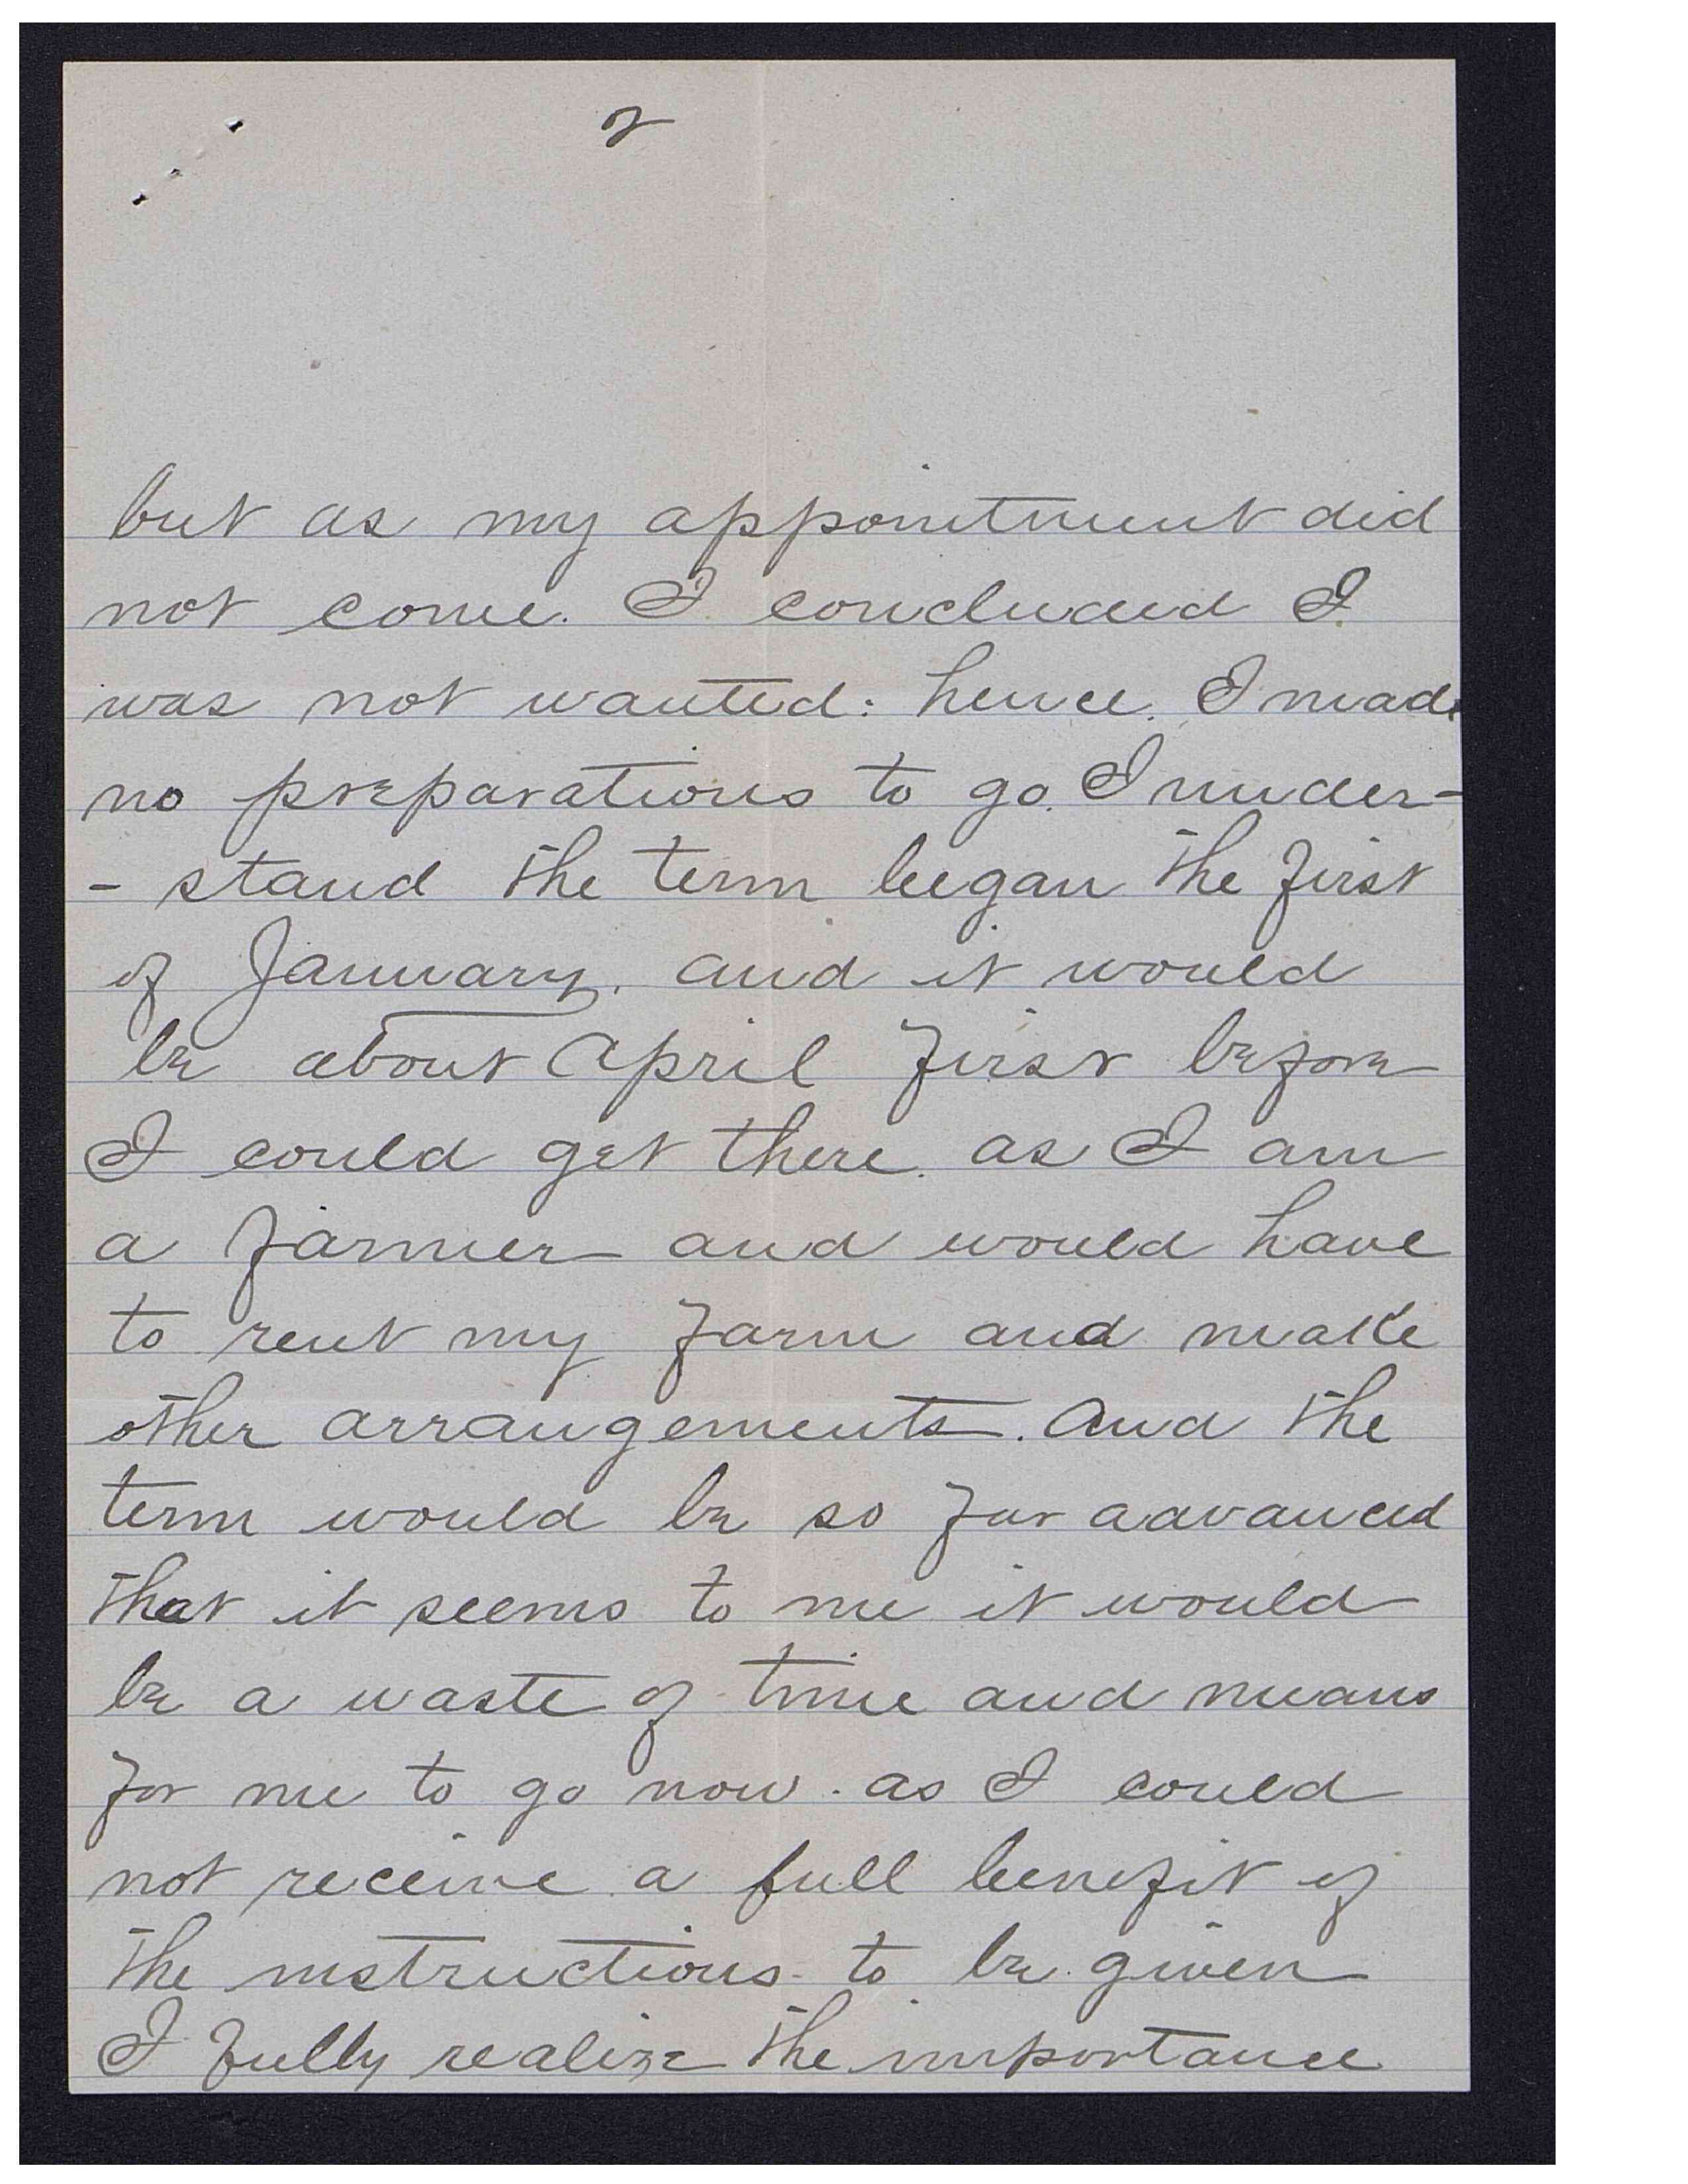 2
but as my appointment did
not come. I concluded I
was not wanted: hence. I made
no preparations to go. I under-
- stand the term began the first
of January. and it would
be about April first before
I could get there. as I am
a farmer and would have
to rent my farm and make
other arrangements. and the
term would be so far advanced
that it seems to me it would
be a waste of time and means
for me to go now. as I could
not receive a full benefit of
the instructions to be given
I fully realize the importance